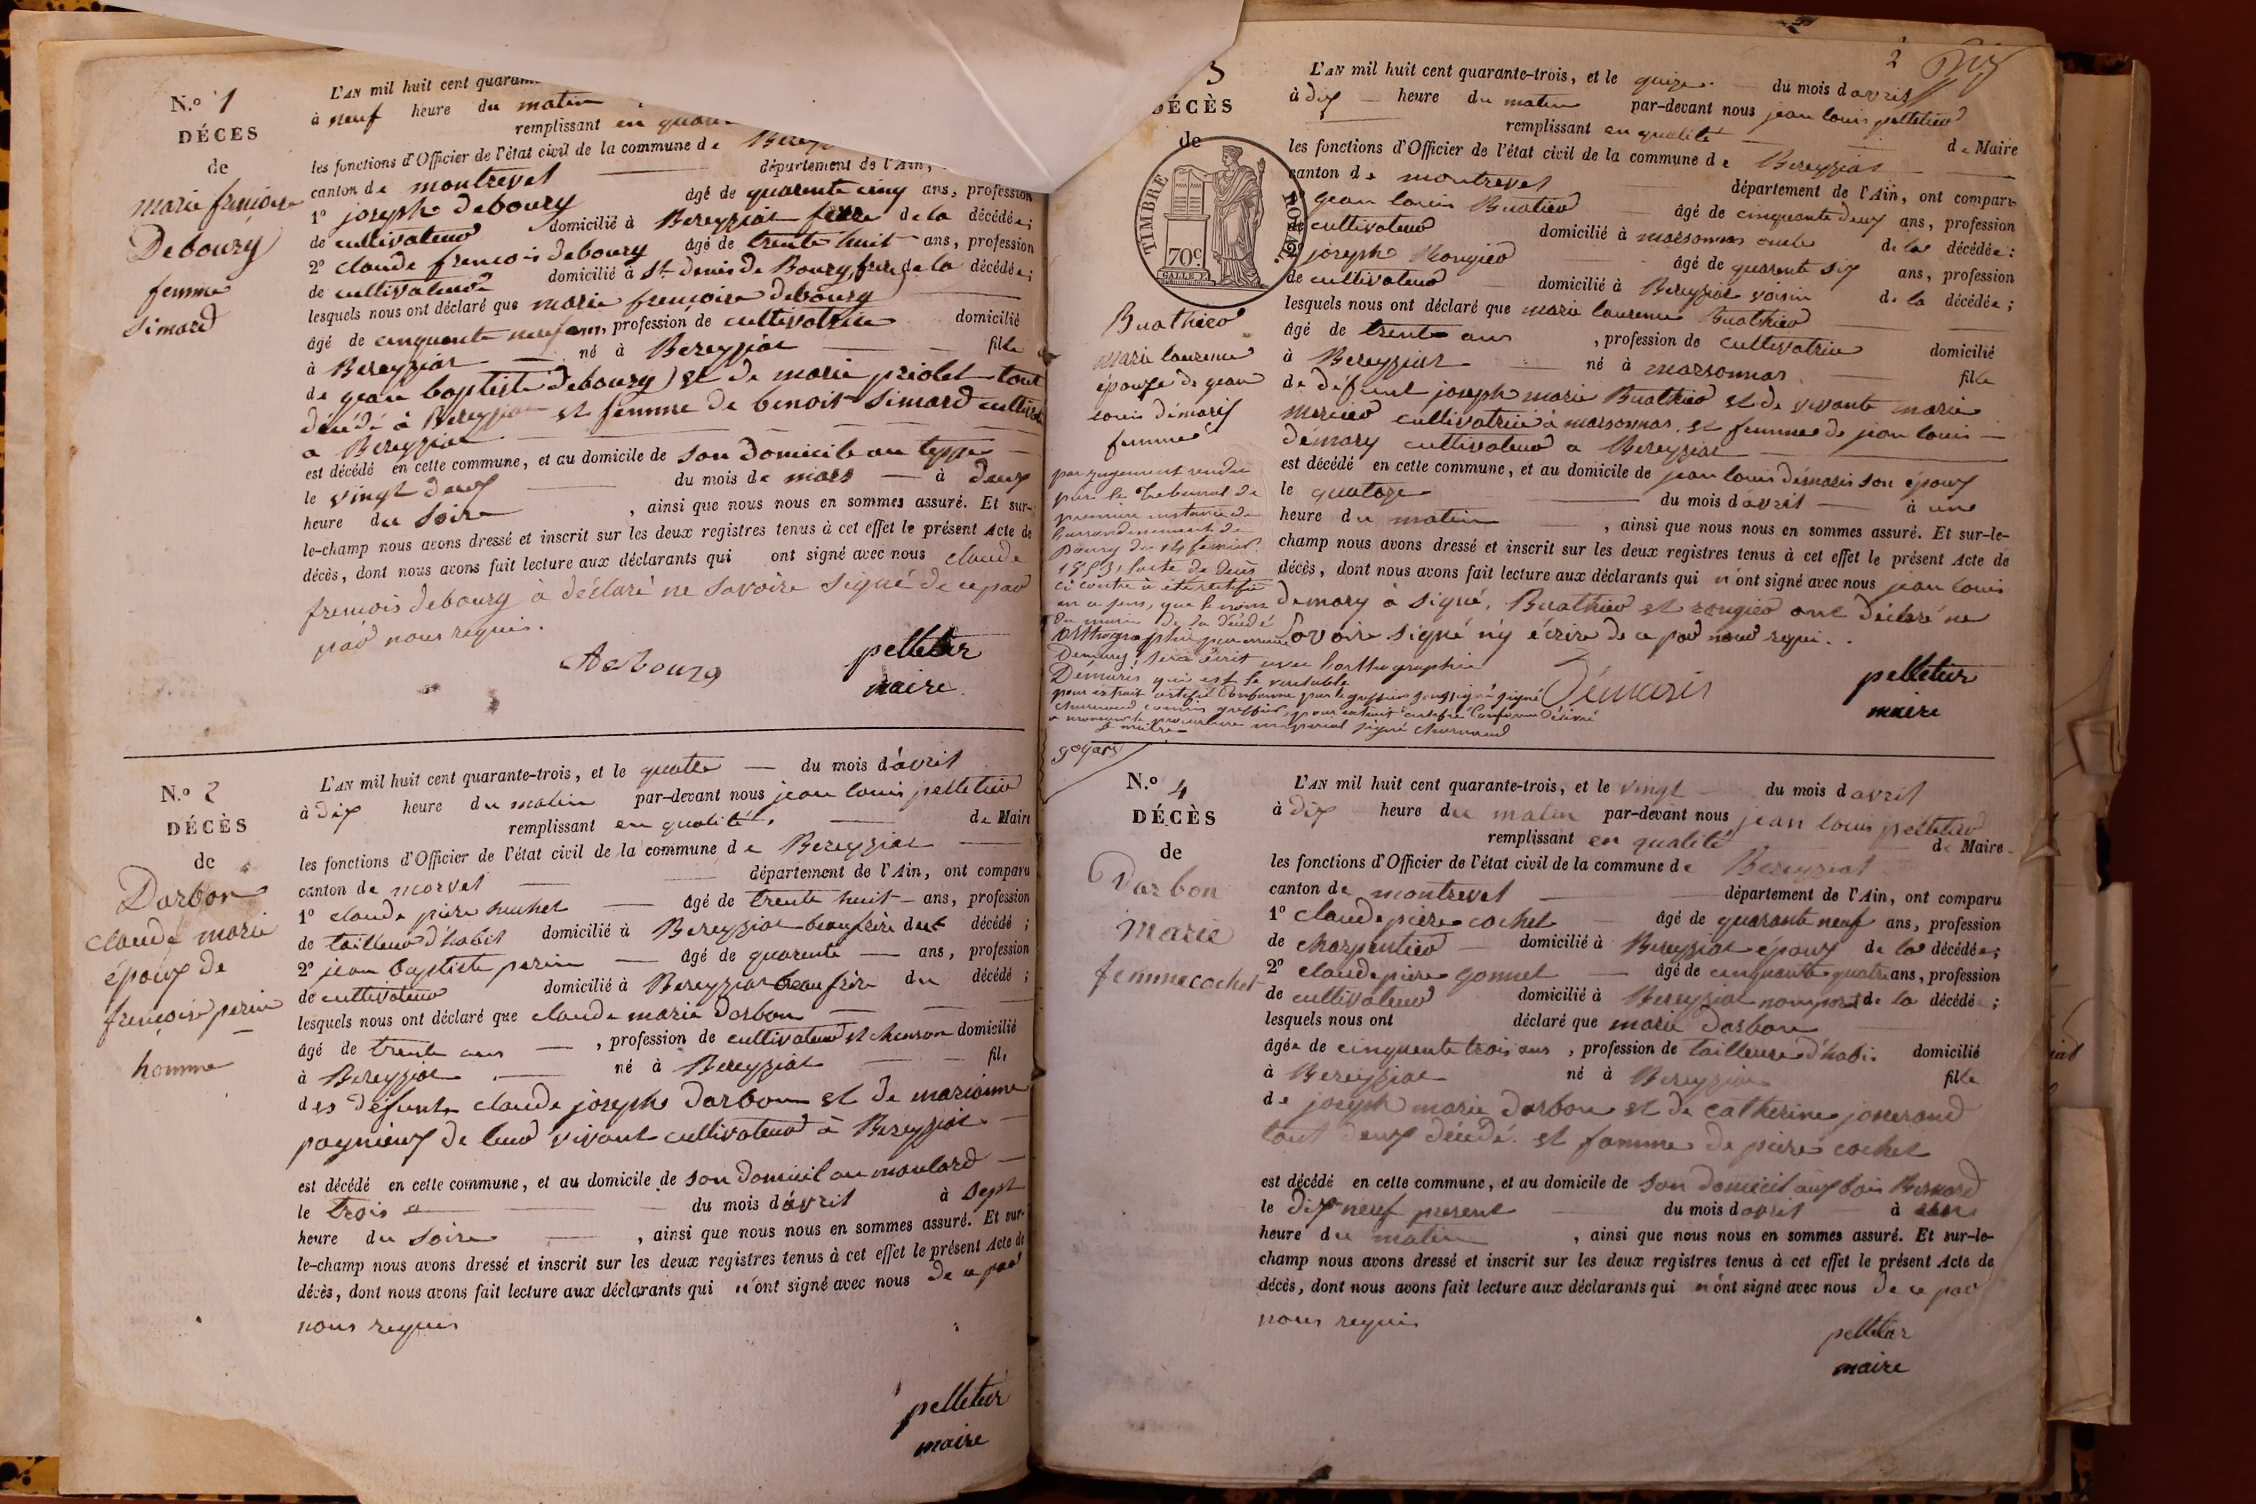 N.º 1
DÉCES
de
marie françoise
Debourg
femme
Simard
L'AN mil huit cent quaran
à neuf heure du matin
remplissant en
les fonctions d'Officier de l'état civil de la commune de
canton de montrevel département de l'Ain,
1º joseph debourg âgé de quarente cinq ans, profession
de cultivateur domicilié à Bereyziat frere de la décédée;
2º claude francois debourg âgé de trente huit ans, profession
de cultivateur domicilié à St denis de Bourg, frere de la décédée;
lesquels nous ont déclaré que marie françoise debourg
âgé de cinquante neuf ans, profession de cultivatrice domicilié
à Bereyziat né à Bereyziat fille
de jean baptiste debourg et de marie priolet tout
décédé à Bereyziat et femme de benoit Simard
a Bereyziat
est décédé en cette commune, et au domicile de son domicile au teppe
le vingt deux du mois de mars à deux
heure du Soire, ainsi que nous nous en sommes assuré. Et sur-
le-champ nous avons dressé et inscrit sur les deux registres tenus à cet effet le présent Acte de
décès, dont nous avons fait lecture aux déclarants qui ont signé avec nous claude
francois debourg à déclaré ne savoire signé de ce par
par nous requis.
Debourg
pelletier
maire
N.º 2
DÉCÈS
de
Darbon
claude marie
époux de
françoise perin
homme
L'AN mil huit cent quarante-trois, et le quatre du mois d'avril
à dix heure du matin par-devant nous jean louis pelletier
remplissant en qualité de Maire
les fonctions d'Officier de l'état civil de la commune de Bereyziat
canton de morvel département de l'Ain, ont comparu
1º claude piere âgé de trente huit ans, profession
de tailleur d'habit domicilié à Bereyziat beaufrère du décédé;
2º jean baptiste perin âgé de quarente ans, profession
de cultivateur domicilié à Bereyziat beaufrère du décédé;
lesquels nous ont déclaré que claude marie Darbon
âgé de trente ans, profession de cultivateur et domicilié
à Bereyziat né à Bereyziat fils
des défunts claude joseph Darbon et de marianne
pagnieux de leur vivant cultivateur à Bereyziat
est décédé en cette commune, et au domicile de son domicil au moulard
le trois du mois d'avril à sept
heure du Soire, ainsi que nous nous en sommes assuré. Et sur-
le-champ nous avons dressé et inscrit sur les deux registres tenus à cet effet le présent Acte de
décès, dont nous avons fait lecture aux déclarants qui n'ont signé avec nous de ce par
nous requis
pelletier
maire
2
3
DÉCÈS
de
TIMBRE ROYAL
70c.
Buathier
marie laurence
épouse de jean
louis démaris
femme
L'AN mil huit cent quarante-trois, et le quinze du mois d'avril
à dix heure du matin par-devant nous jean louis pelletier
remplissant en qualité de Maire
les fonctions d'Officier de l'état civil de la commune de Bereyziat
canton de montrevel département de l'Ain, ont comparu
jean louis Buatier âgé de cinquante deux ans, profession
de cultivateur domicilié à marsonnas oncle de la décédée:
2º joseph Rongier âgé de quarente six ans, profession
de cultivateur domicilié à Bereyziat voisin de la décédée;
lesquels nous ont déclaré que marie laurence Buathier
âgé de trente ans, profession de cultivatrice domicilié
à Bereyziat né à marsonnas fille
de défunt joseph marie Buathier et de vivante marie
mercier cultivatrice à marsonnas et femme de jean louis
démary cultivateur a Bereyziat
est décédé en cette commune, et au domicile de jean louis démaris son époux
le quatorze du mois d'avril à une
heure du matin, ainsi que nous nous en sommes assuré. Et sur-le-
champ nous avons dressé et inscrit sur les deux registres tenus à cet effet le présent Acte de
décès, dont nous avons fait lecture aux déclarants qui n'ont signé avec nous jean louis
demary à signé, Buathier et rongier ont déclaré ne
savoire signé n'y écrire de ce par nous requi.
Démaris
pelletier
maire
par jugement rendu
par le Tribunal de
première instance de
l'arrondissement de
Bourg du 14 fevrier
1853, l'acte de Décès
ci contre à été rectifié
en ce sens, que le nom
du mari de la décédé
orthographié par erreur
Demary, sera écrit avec l'orthographie
Démaris qui est le véritable
pour extrait certifié conforme par le greffier soussigné signé
commis greffier, pour extrait certifié conforme Délivré
a monsieur le procureur imperial signé
le maire
goyard
N.º 4
DÉCÈS
de
Darbon
Marie
femme cochet
L'AN mil huit cent quarante-trois, et le vingt du mois d'avril
à dix heure du matin par-devant nous jean louis pelletier
remplissant en qualité de Maire
les fonctions d'Officier de l'état civil de la commune de Bereyziat
canton de montrevel département de l'Ain, ont comparu
1º claude piere cochet âgé de quarante neuf ans, profession
de charpentier domicilié à Bereyziat époux de la décédée;
2º claude piere gonnet âgé de cinquante quatre ans, profession
de cultivateur domicilié à Bereyziat non parent de la décédée;
lesquels nous ont déclaré que marie Darbon
âgée de cinquente trois ans, profession de tailleuse d'habi. domicilié
à Bereyziat né à Bereyziat fille
de joseph marie darbon et de catherine josserand
tout deux décédé. et famme de piere cochet
est décédé en cette commune, et au domicile de son domicil aux bois Bernard
le dix neuf present du mois d'avril à
heure du matin, ainsi que nous nous en sommes assuré. Et sur-le-
champ nous avons dressé et inscrit sur les deux registres tenus à cet effet le présent Acte de
décès, dont nous avons fait lecture aux déclarants qui n'ont signé avec nous de ce par
nous requis
pelletier
maire